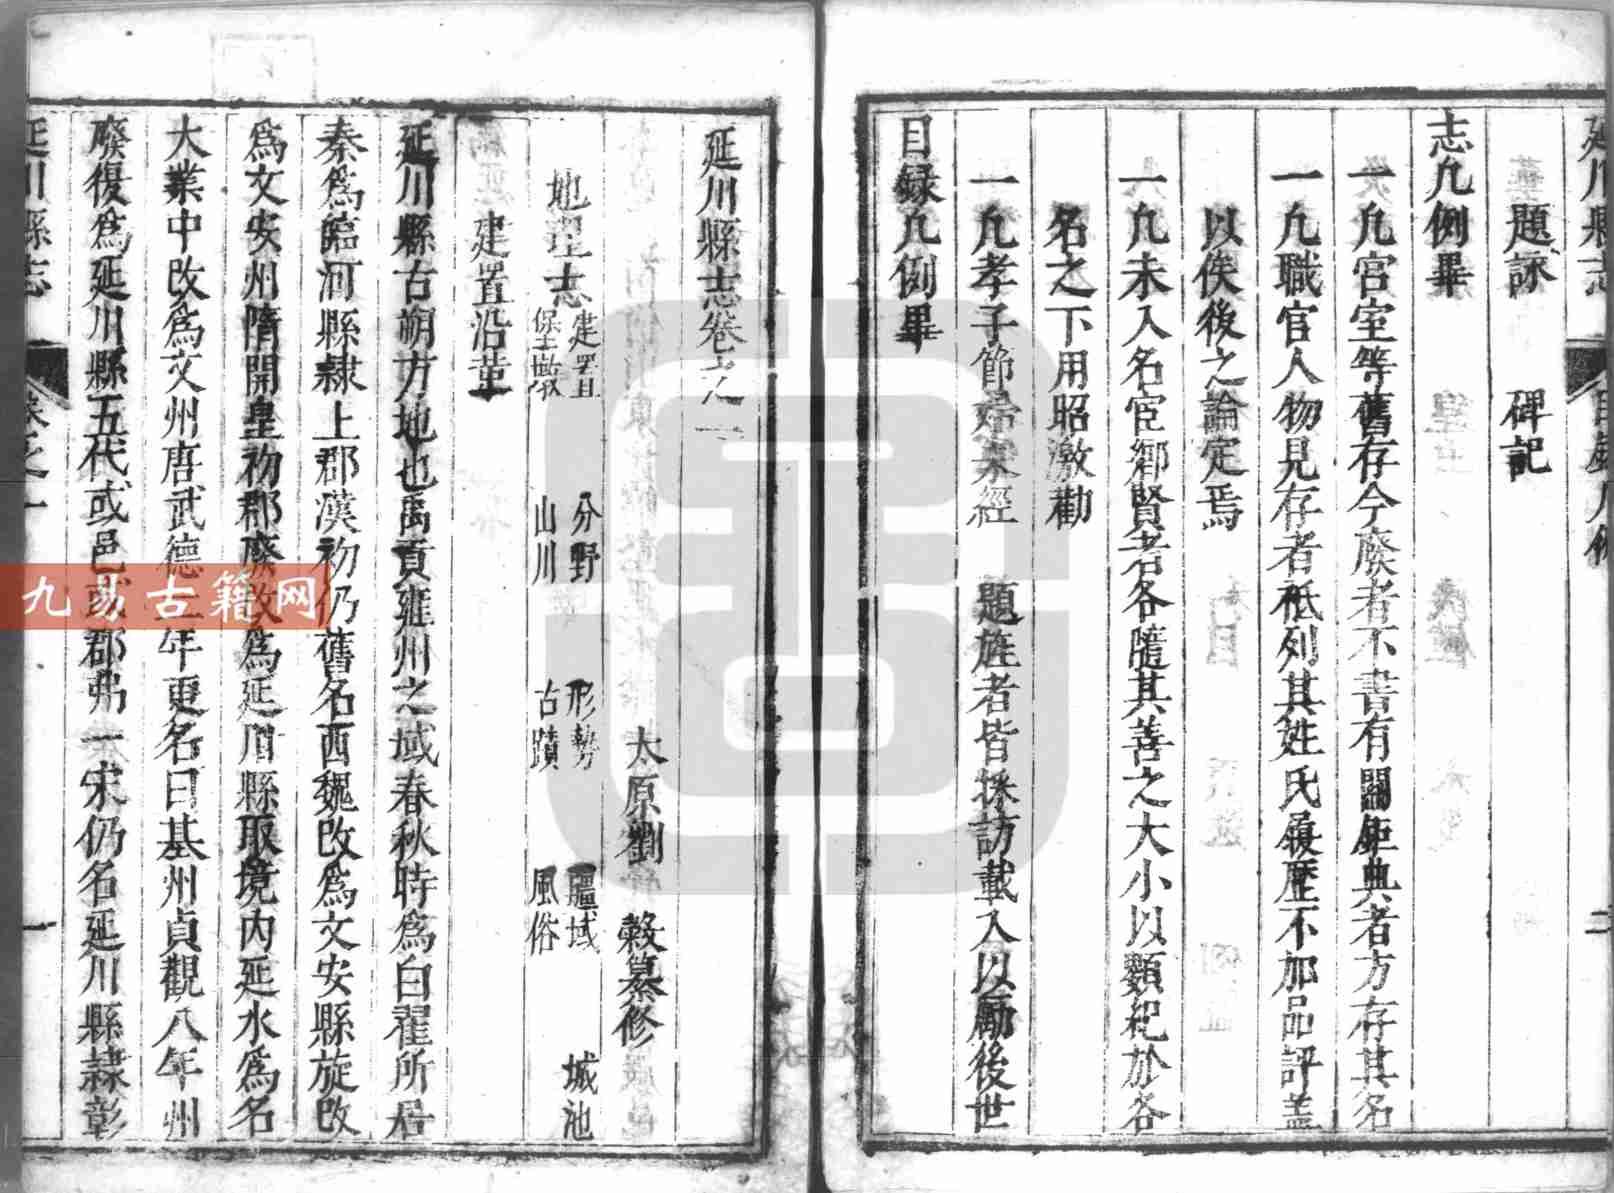 題詠 碑記
志凡例畢
一凡宫室等舊存今廢者不書有關鉅典者方存其名
一凡職官人物見存者祗列其姓氏履歷不加品評蓋
以俟後之論定焉
一凡未入名宦鄉賢者各隨其善之大小以類紀於各
名之下用昭激勸
一凡孝子節婦未經 題旌者皆採訪載入以勵後世
目録凡例畢
延川縣志卷之一
太原劉 穀纂修
地理志 建置 分野 形勢 疆域 城池
堡 山川 古蹟 風俗
建置沿革
延川縣古朔方地也禹貢雍州之域春秋時爲白翟所居
秦爲臨河縣隷上郡漢初仍舊名西魏改爲文安縣旋改
爲文安州隋開皇初郡廢改爲延川縣取境内延水爲名
大業中改爲文州唐武德二年更名曰基州貞觀八年州
廢復爲延川縣五代或邑或郡弗一宋仍名延川縣隷彰
延川縣志 卷之一 一
九易古籍网